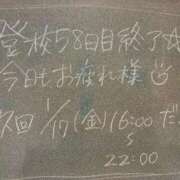 登校58日目終了☆
今日もお疲れ様☺
次回 1/17(金)16:00だ
〜
22:00